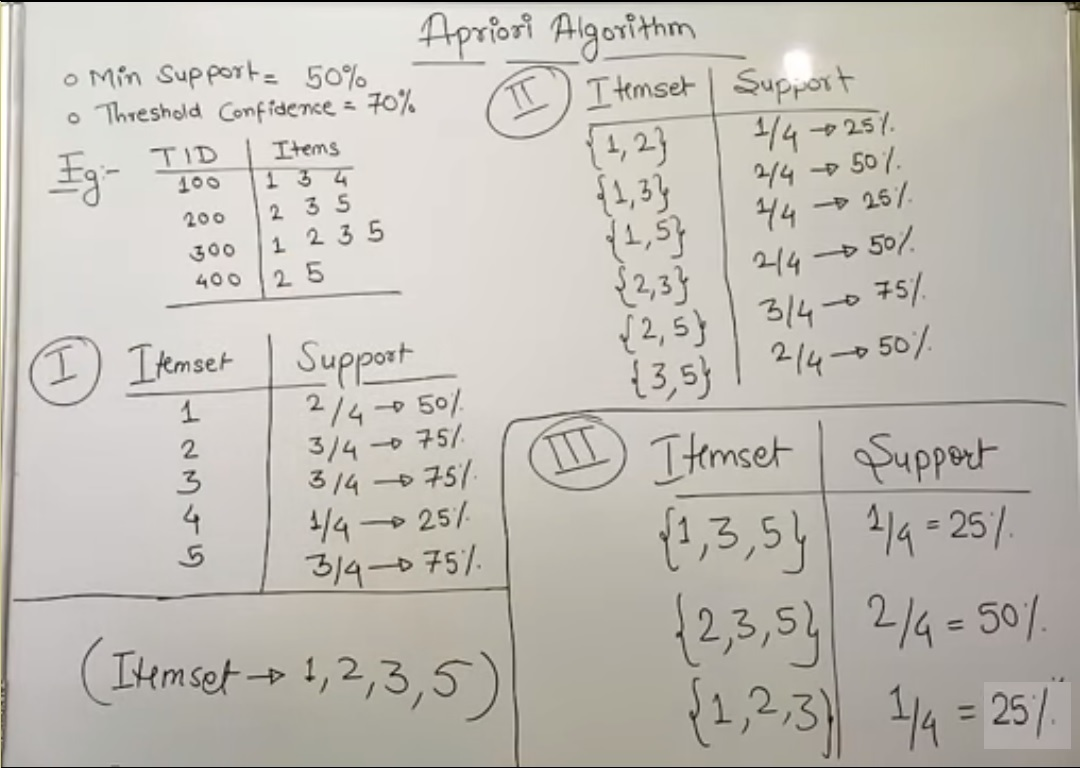 Apriori Algorithm
o Min Support = 50%
o Threshold Confidence = 70%
Eg:-
TID | Items
100 | 1 3 4
200 | 2 3 5
300 | 1 2 3 5
400 | 2 5
I
Itemset | Support
1 | 2/4 → 50%
2 | 3/4 → 75%
3 | 3/4 → 75%
4 | 1/4 → 25%
5 | 3/4 → 75%
(Itemset → 1, 2, 3, 5)
II
Itemset | Support
{1,2} | 1/4 → 25%
{1,3} | 2/4 → 50%
{1,5} | 1/4 → 25%
{2,3} | 2/4 → 50%
{2,5} | 3/4 → 75%
{3,5} | 2/4 → 50%
III
Itemset | Support
{1,3,5} | 1/4 = 25%
{2,3,5} | 2/4 = 50%
{1,2,3} | 1/4 = 25%